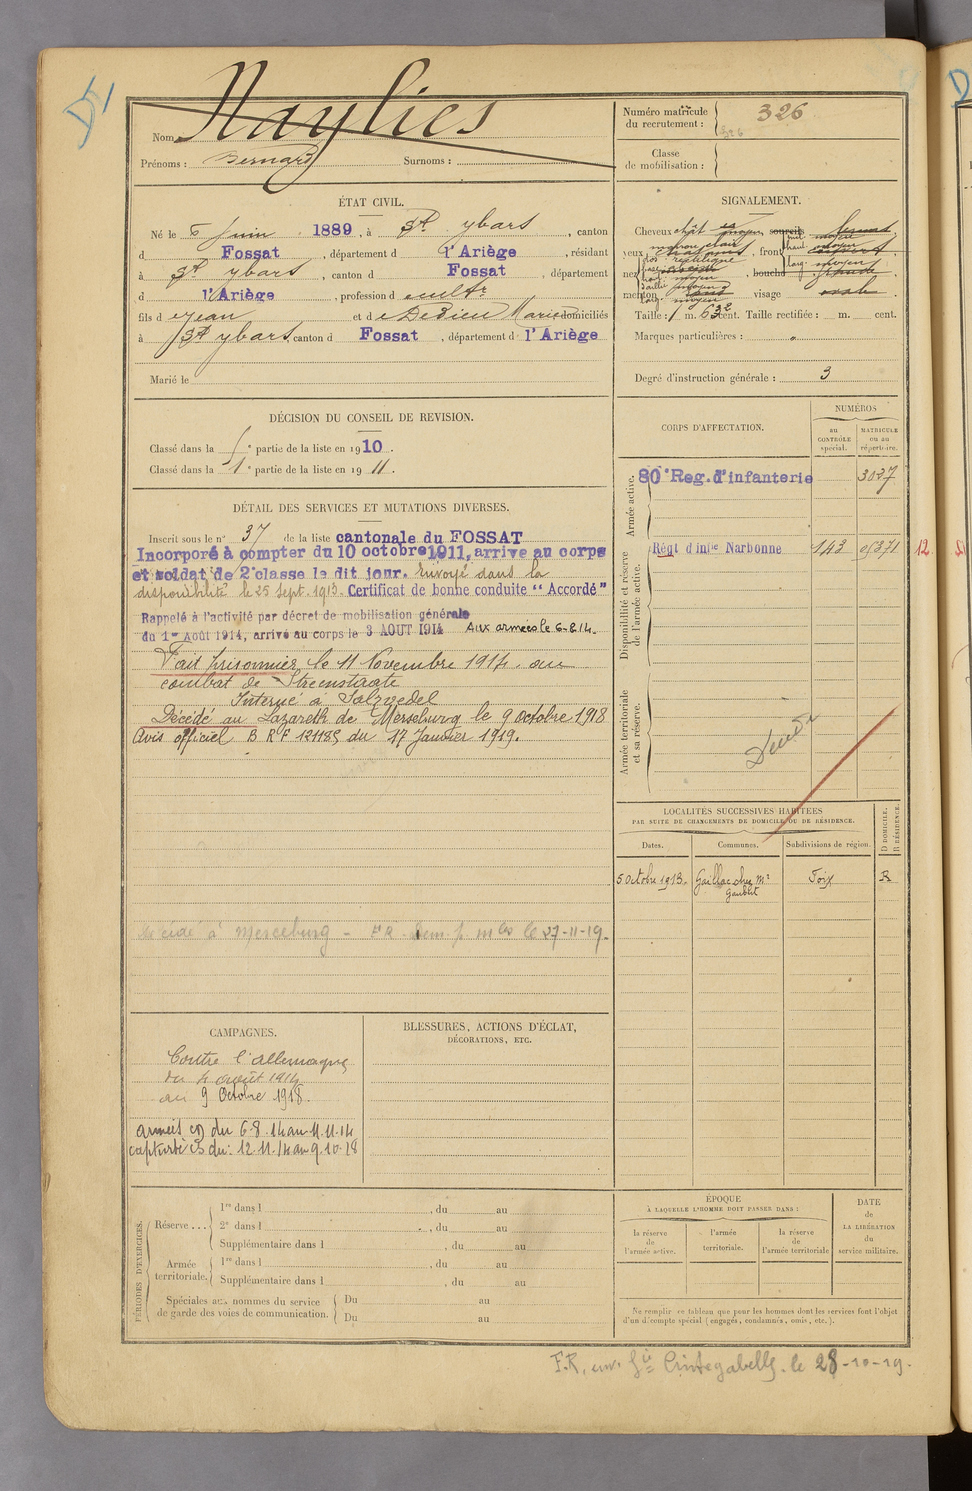 Nom Naylies
Prénoms : Bernard Surnoms :
Numéro matricule du recrutement : 326
Classe de mobilisation :
ÉTAT CIVIL.
Né le 6 Juin 1889, à St ybars, canton
d Fossat, département d l'Ariège, résidant
à St ybars, canton d Fossat, département
d l'Ariège, profession d cultr
fils d Jean et d Dedieu Marie domiciliés
à St ybars canton d Fossat, département d l'Ariège
Marié le
DÉCISION DU CONSEIL DE REVISION.
Classé dans la partie de la liste en 1910.
Classé dans la 1e partie de la liste en 1911.
DÉTAIL DES SERVICES ET MUTATIONS DIVERSES.
Inscrit sous le no 37 de la liste cantonale du FOSSAT
Incorporé à compter du 10 octobre 1911, arrive au corps
et soldat de 2e classe le dit jour. Envoyé dans la
disponibilité le 25 sept. 1913. Certificat de bonne conduite “ Accordé”
Rappelé à l'activité par décret de mobilisation générale
du 1er Août 1914, arrivé au corps le 3 AOUT 1914 Aux armées le 6-8-14.
Fait prisonnier le 11 Novembre 1914 au
combat de Streenstrate
Interné à Salzvedel
Décédé au Lazareth de Merseburg le 9 octobre 1918
Avis officiel B R F du 17 Janvier 1919.
Décédé à Merseburg - le 27-11-19.
CAMPAGNES.
Contre l'allemagne
du 4 août 1914
au 9 Octobre 1918.
armées du 6.8.14 au 11.11.14
captivité du 12.11.14 au 9.10.18
BLESSURES, ACTIONS D'ÉCLAT,
DÉCORATIONS, ETC.
PÉRIODES D'EXERCICES.
Réserve ... 1re dans l , du au
2e dans l , du au
Supplémentaire dans l , du au
Armée territoriale. 1re dans l , du au
Supplémentaire dans l , du au
Spéciales aux nommes du service de garde des voies de communication. Du au
Du au
SIGNALEMENT.
Cheveux chât sourcils
yeux front
nez bouche
menton visage ovale
Taille : 1 m. 63 cent. Taille rectifiée : m. cent.
Marques particulières : "
Degré d'instruction générale : 3
CORPS D'AFFECTATION.
NUMÉROS
au CONTRÔLE spécial.
MATRICULE ou au répertoire.
Armée active.
80e Reg. d'infanterie 3027
Disponibilité et réserve de l'armée active.
Régt d'infie Narbonne 143
12
Armée territoriale et sa réserve.
LOCALITÉS SUCCESSIVES HABITÉES
PAR SUITE DE CHANGEMENTS DE DOMICILE OU DE RÉSIDENCE.
Dates. Communes. Subdivisions de région. D DOMICILE. R RÉSIDENCE.
5 Octobre 1913. Gaillac chez Mr Foix R
ÉPOQUE
À LAQUELLE L'HOMME DOIT PASSER DANS :
la réserve de l'armée active.
l'armée territoriale.
la réserve de l'armée territoriale
DATE DE LA LIBÉRATION du service militaire.
Ne remplir ce tableau que pour les hommes dont les services font l'objet
d'un décompte spécial (engagés, condamnés, omis, etc.).
F.R. Cintegabelle le 28-10-19.